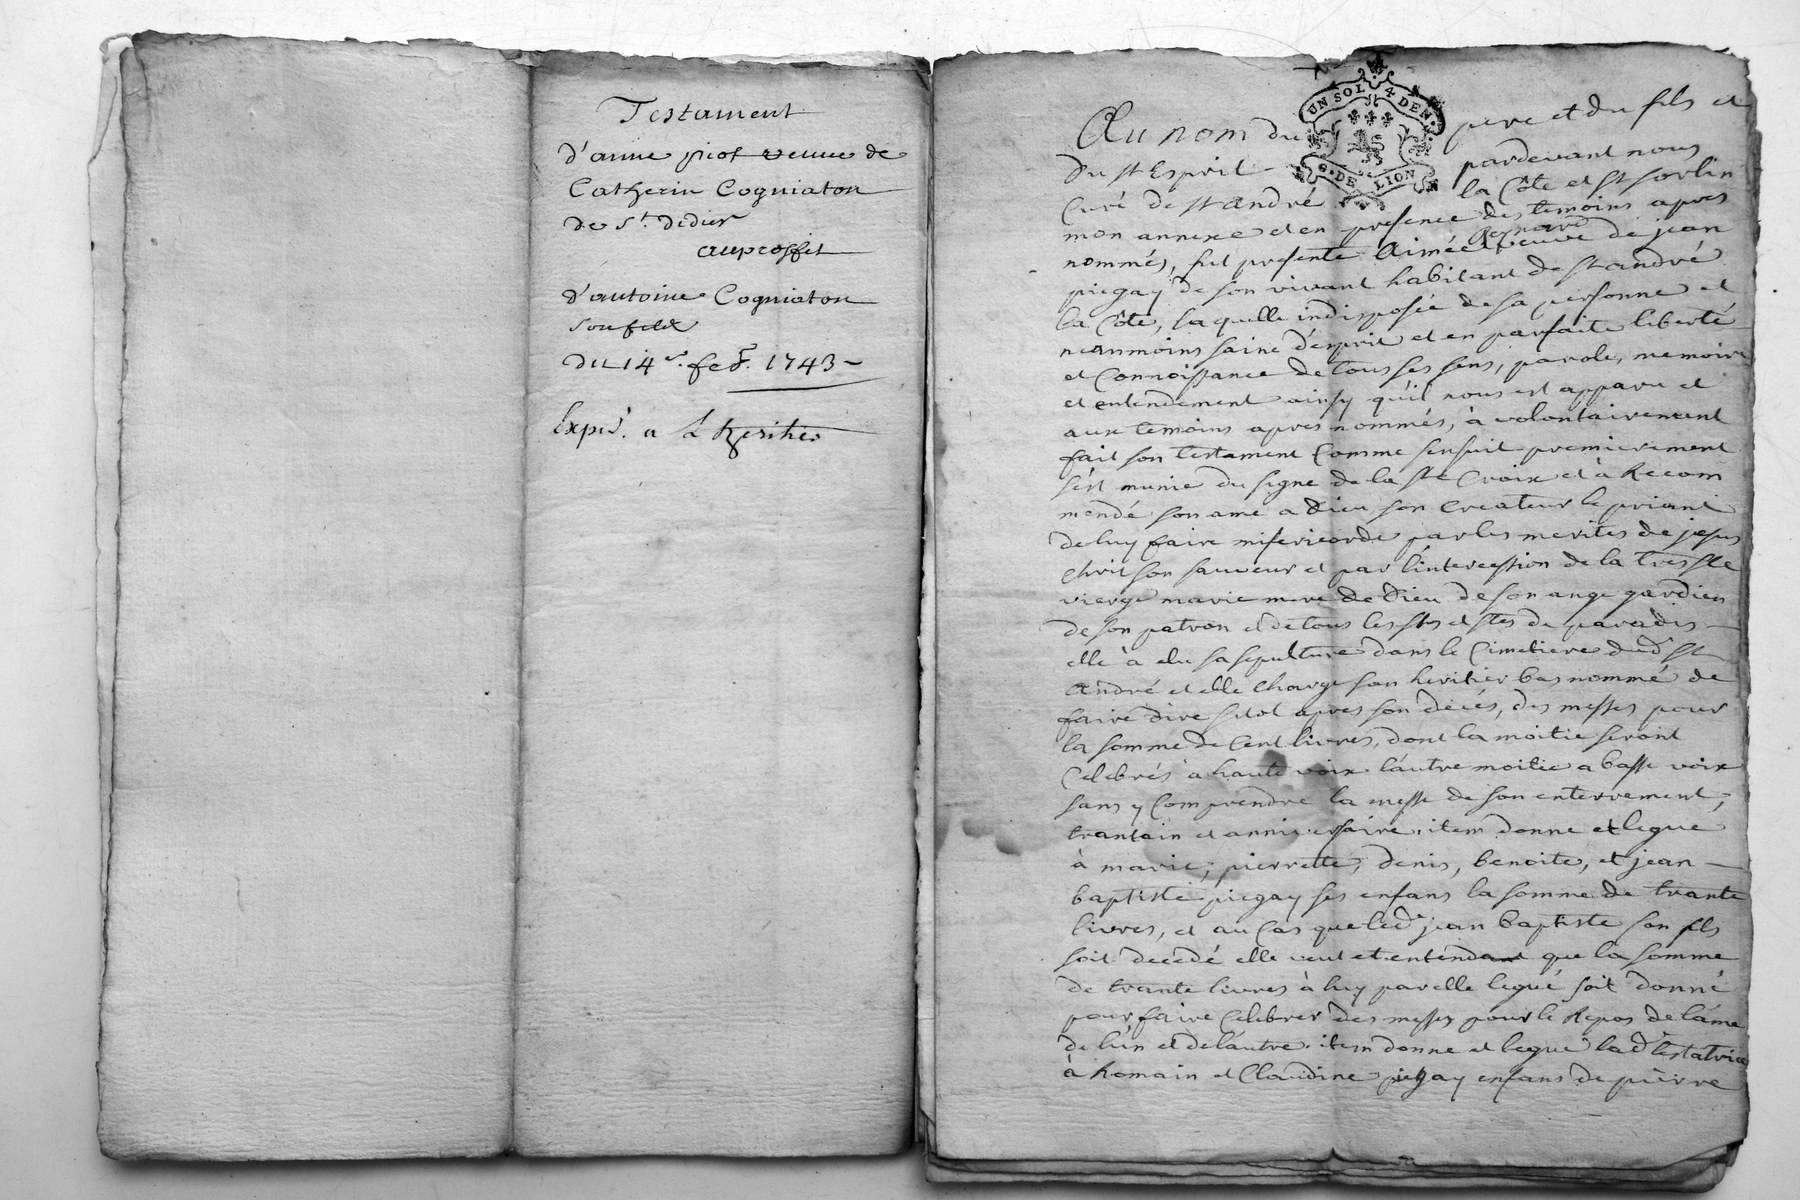 Testament
d'anne picot veuve de
Catherin Cogniaton
de St. Didier
auproffit
d'antoine Cogniaton
son fils
du 14e. fev. 1743
Exped. a L'heritier
UN SOL 4 DEN.
G. DE LION
Au nom du pere et du fils et
du st Esprit pardevant nous
Curé de st andré la Côte et st sorlin
mon annexe et en presence des temoins apres
nommés, fut presente Aimée veuve de jean
piegay de son vivant habitant de st andré
la Côte, laquelle indisposée de sa personne et
neanmoins saine d'esprit et en parfaite liberté
et Connoissance de tous ses sens, parole, memoire
et entendement ainsy qu'il nous est apparu et
aux temoins apres nommés, à volontairement
fait son testament Comme sensuit premierement
s'est munie du signe de la ste Croix et à Recom
mendé son ame a Dieu son Createur le priant
de luy faire misericorde par les merites de jesus
christ son sauveur et par l'intercession de la tres ste
vierge marie mere de Dieu de son ange gardien
de son patron et de tous les sts et stes du paradis
elle à elu sa sepulture dans le Cimetiere dud st
André et elle charge son heritier bas nommé de
faire dire sitot apres son décés, des messes pour
la somme de Cent livres, dont la moitie seront
Celebrés a haute voix l'autre moitie a basse voix
sans y Comprendre la messe de son enterrement,
trantain et anniversaire. item donne et legue
à marie, pierrette, denis, benoite, et jean
baptiste piegay ses enfans la somme de trante
livres, et au Cas que led jean baptiste son fils
soit decedé elle veut et entend que la somme
de trante livres à luy par elle legué soit donné
pour faire Celebrer des messes pour le Repos de l'ame
de l'un et de l'autre. item donne et legue lad testatrice
à Romain et Claudine piegay enfans de pierre